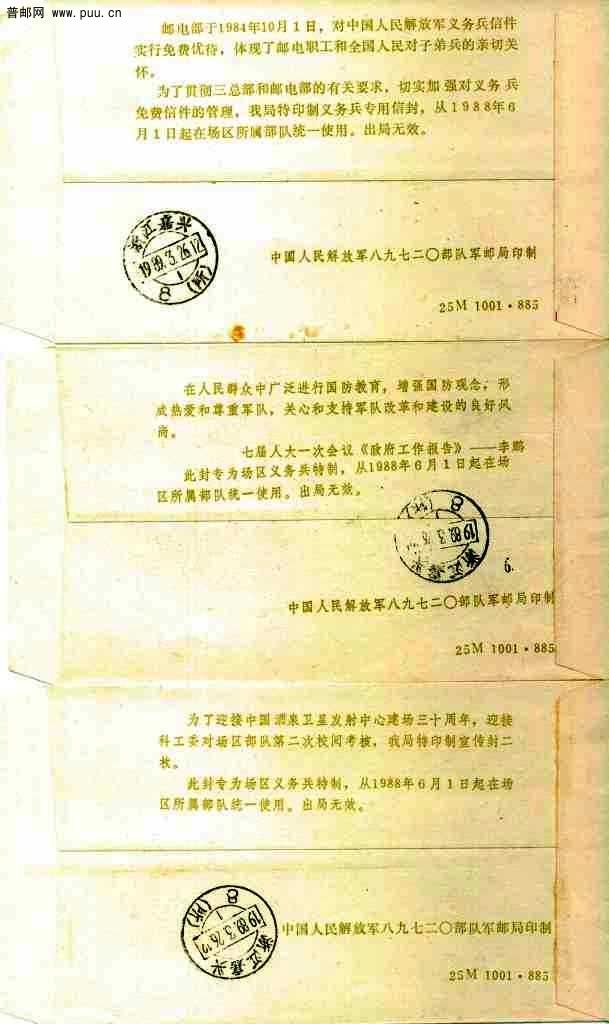 普邮网 www.puu.cn
邮电部于1984年10月1日，对中国人民解放军义务兵信件
实行免费优待，体现了邮电职工和全国人民对子弟兵的亲切关
怀。
为了贯彻三总部和邮电部的有关要求，切实加强对义务兵
免费信件的管理，我局特印制义务兵专用信封，从1988年6
月1日起在场区所属部队统一使用。出局无效。
浙江嘉兴
1989.3.26.12
1
8(所)
中国人民解放军八九七二〇部队军邮局印制
25M 1001·885
在人民群众中广泛进行国防教育，增强国防观念，形
成热爱和尊重军队，关心和支持军队改革和建设的良好风
尚。
七届人大一次会议《政府工作报告》——李鹏
此封专为场区义务兵特制，从1988年6月1日起在场
区所属部队统一使用。出局无效。
8(所)
1
1989.3.26
浙江嘉兴
6.
中国人民解放军八九七二〇部队军邮局印制
25M 1001·885
为了迎接中国酒泉卫星发射中心建场三十周年，迎接
科工委对场区部队第二次校阅考核，我局特印制宣传封二
枚。
此封专为场区义务兵特制，从1988年6月1日起在场
区所属部队统一使用。出局无效。
8(所)
1
1989.3.26.12
浙江嘉兴
中国人民解放军八九七二〇部队军邮局印制
25M 1001·885